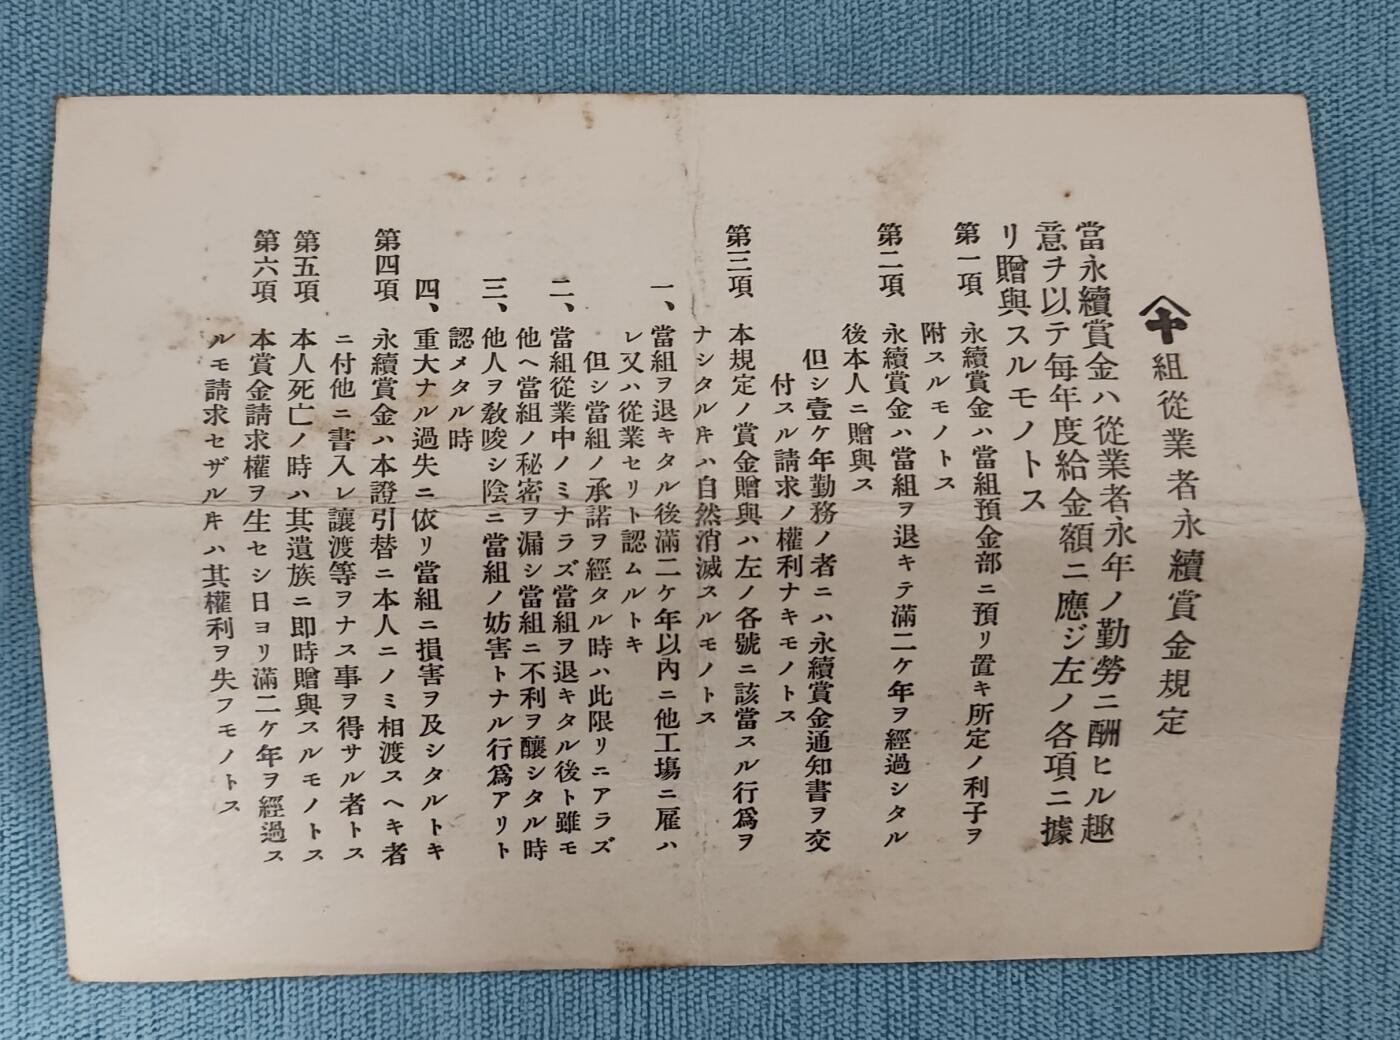 𠆢十組從業者永續賞金規定
當永續賞金ハ從業者永年ノ勤勞ニ酬ヒル趣
意ヲ以テ每年度給金額ニ應ジ左ノ各項ニ據
リ贈與スルモノトス
第一項 永續賞金ハ當組預金部ニ預リ置キ所定ノ利子ヲ
附スルモノトス
第二項 永續賞金ハ當組ヲ退キテ滿二ケ年ヲ經過シタル
後本人ニ贈與ス
但シ壹ケ年勤務ノ者ニハ永續賞金通知書ヲ交
付スル請求ノ權利ナキモノトス
第三項 本規定ノ賞金贈與ハ左ノ各號ニ該當スル行爲ヲ
ナシタル𪜈ハ自然消滅スルモノトス
一、當組ヲ退キタル後滿二ケ年以內ニ他工塲ニ雇ハ
レ又ハ從業セリト認ムルトキ
但シ當組ノ承諾ヲ經タル時ハ此限リニアラズ
二、當組從業中ノミナラズ當組ヲ退キタル後ト雖モ
他ヘ當組ノ秘密ヲ漏シ當組ニ不利ヲ釀シタル時
三、他人ヲ敎唆シ陰ニ當組ノ妨害トナル行爲アリト
認メタル時
四、重大ナル過失ニ依リ當組ニ損害ヲ及シタルトキ
第四項 永續賞金ハ本證引替ニ本人ニノミ相渡スヘキ者
ニ付他ニ書入レ讓渡等ヲナス事ヲ得サル者トス
第五項 本人死亡ノ時ハ其遺族ニ卽時贈與スルモノトス
第六項 本賞金請求權ヲ生セシ日ヨリ滿二ケ年ヲ經過ス
ルモ請求セザル𪜈ハ其權利ヲ失フモノトス